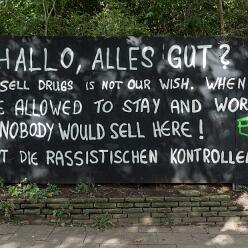 HALLO, ALLES GUT?
SELL DRUGS IS NOT OUR WISH. WHEN
ALLOWED TO STAY AND WOR
NOBODY WOULD SELL HERE!
DIE RASSISTISCHEN KONTROLLE